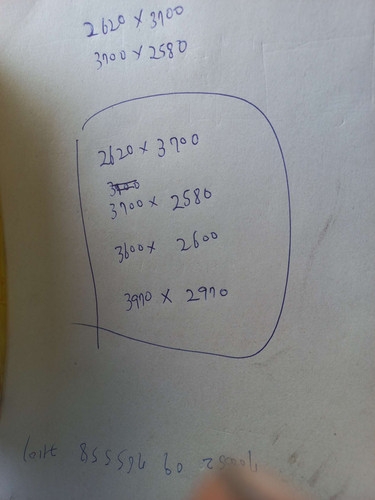 2620 x 3700
3700 x 2580
2620 x 3700
3700 x 2580
3600 x 2600
3970 x 2970